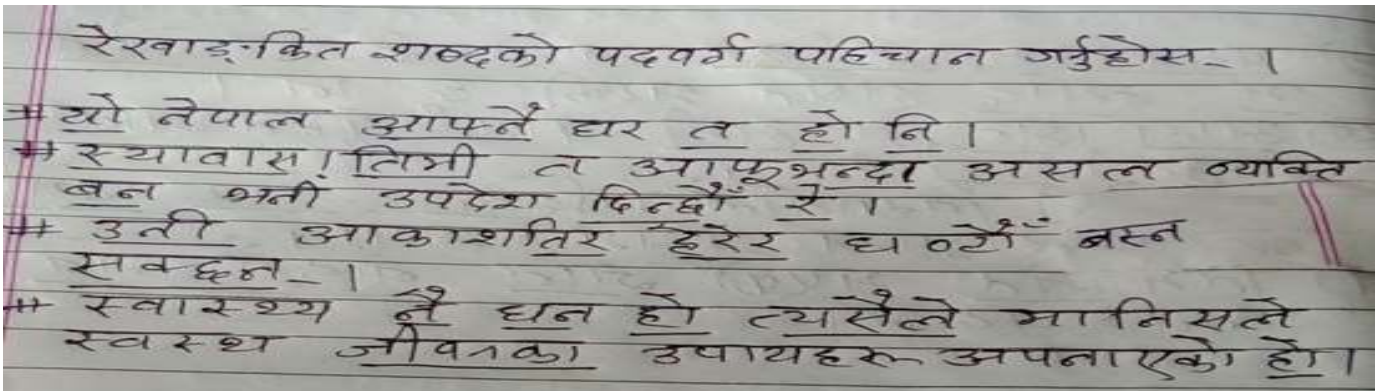 रेखाङ्कित शब्दको पदवर्ग पहिचान गर्नुहोस् ।
# यो नेपाल आफ्नै घर त हो नि ।
# स्यावास! तिमी त आफूभन्दा असल व्यक्ति
बन भनी उपदेश दिन्छौँ रे ।
# उनी आकाशतिर हेरेर घण्टौँ बस्न
सक्छन् ।
# स्वास्थ्य नै धन हो त्यसैले मानिसले
स्वस्थ जीवनका उपायहरू अपनाएको हो ।